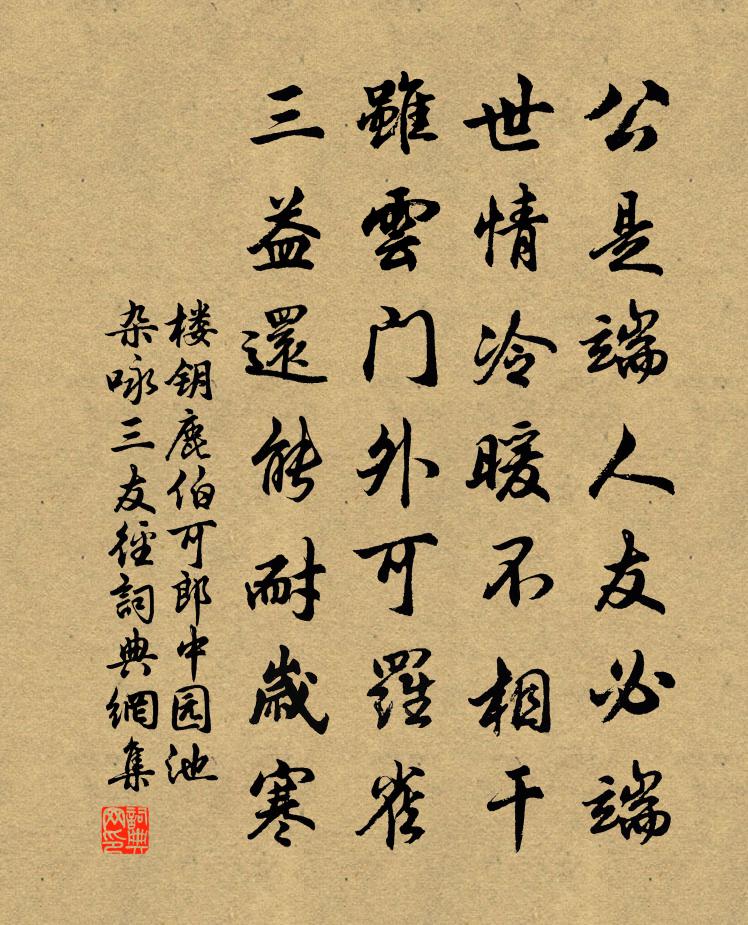 公是端人友必端
世情冷暖不相干
雖雲門外可羅雀
三益還能耐歲寒
楼钥鹿伯可郎中园池
杂咏三友徑詞典網集
詞典网印